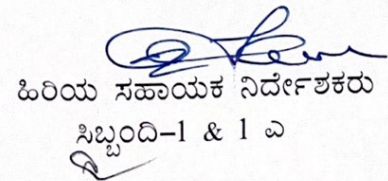 ಹಿರಿಯ ಸಹಾಯಕ ನಿರ್ದೇಶಕರು
ಸಿಬ್ಬಂದಿ-1 & 1 ಎ